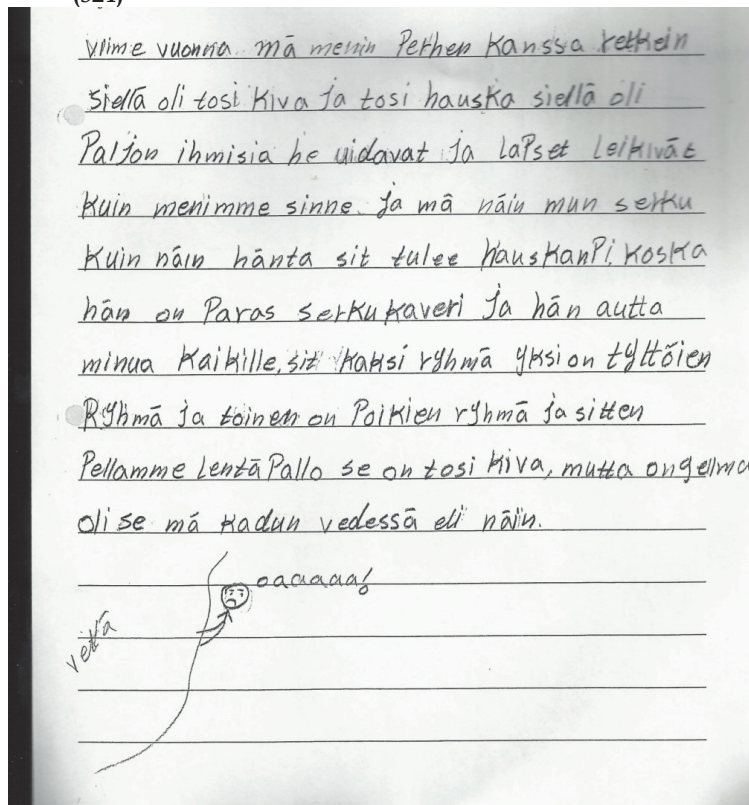 (324)
viime vuonna mä menin Perhen kanssa retkein
Siellä oli tosi kiva ja tosi hauska siellä oli
Paljon ihmisia he uidavat ja lapset leikivät
kuin menimme sinne. ja mä näin mun serku
kuin näin hänta sit tulee hauskanpi, koska
hän on Paras serkukaveri ja hän autta
minua kaikille, sit kaksi ryhmä yksi on tyttöien
Ryhmä ja toinen on Poikien ryhmä ja sitten
Pellamme LentäPallo se on tosi kiva, mutta ongelma
oli se mä kadun vedessä eli näin.
oaaaaaa!
vetä